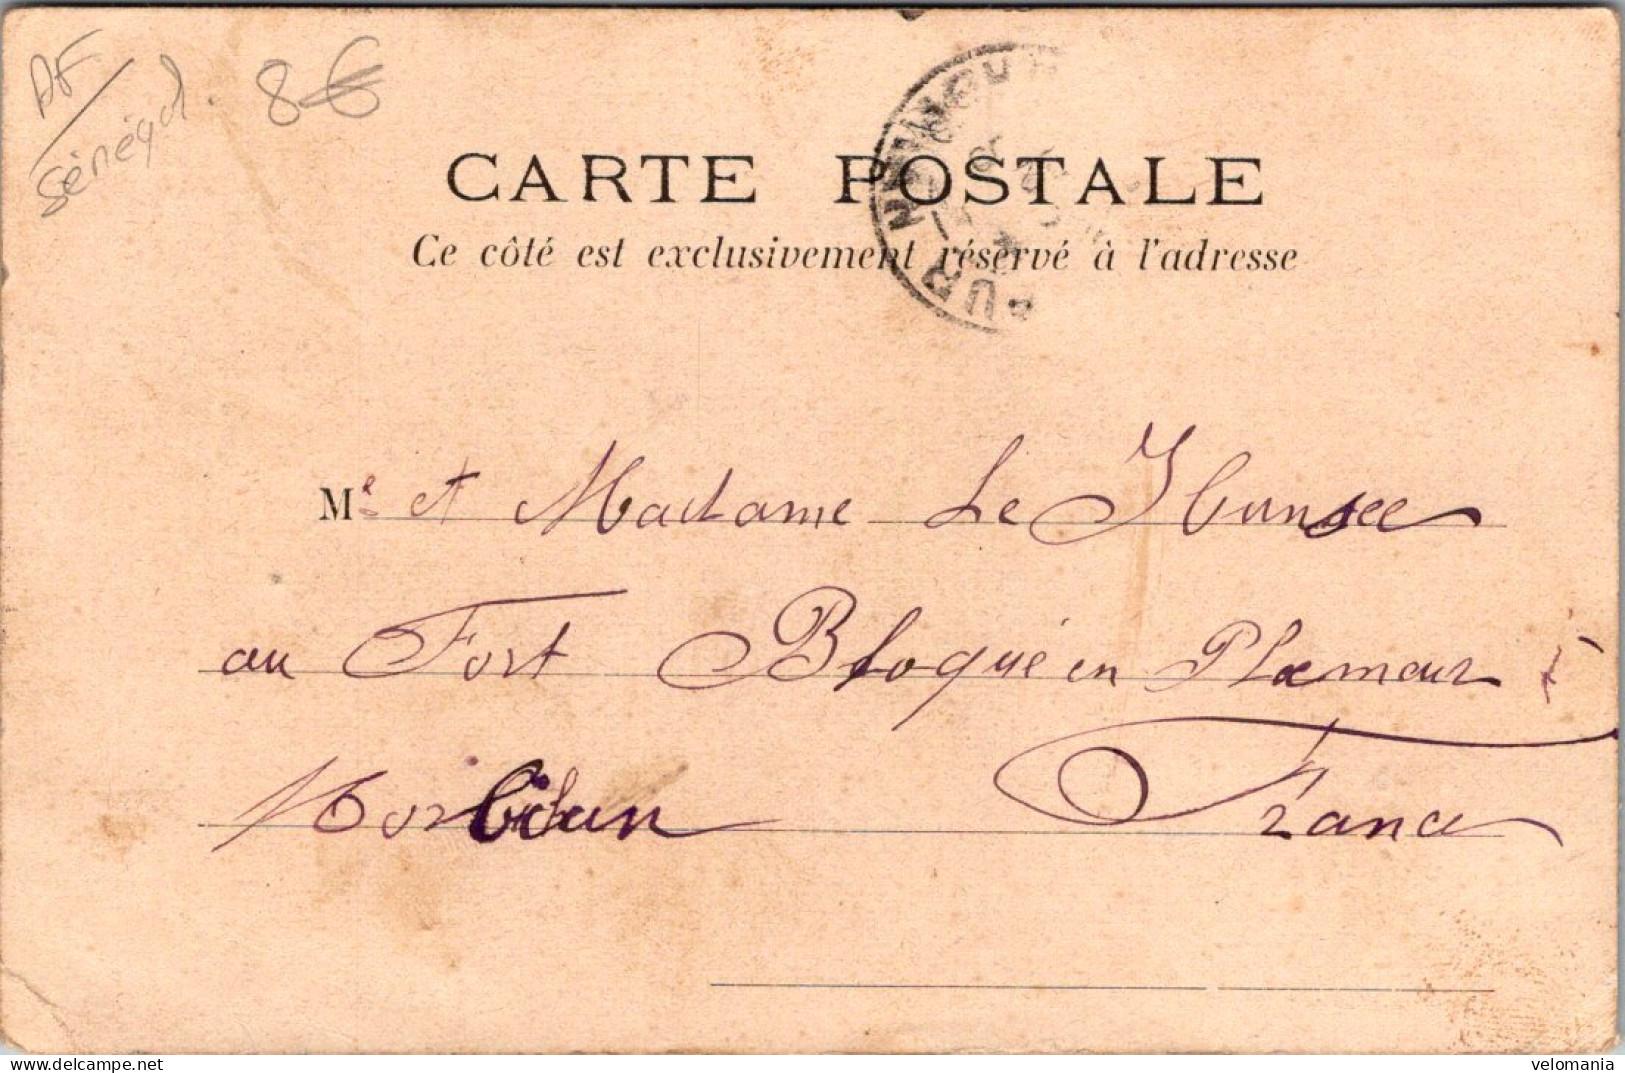 AF
Sénégal. 8€
CARTE POSTALE
Ce côté est exclusivement réservé à l'adresse
Mr et Madame Le
au Fort Bloqué en Plœmeur
Morbihan France
www.delcampe.net
velomania